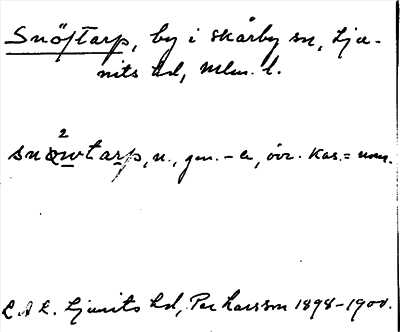 Snöstarp, by i Skårby sn, Lju-
nits hd, Mlm. l.
2
snöwtarp, n., gen. -a, övr. kas. = nom.
L A L. Ljunits hd, Per Larsson 1898-1900.